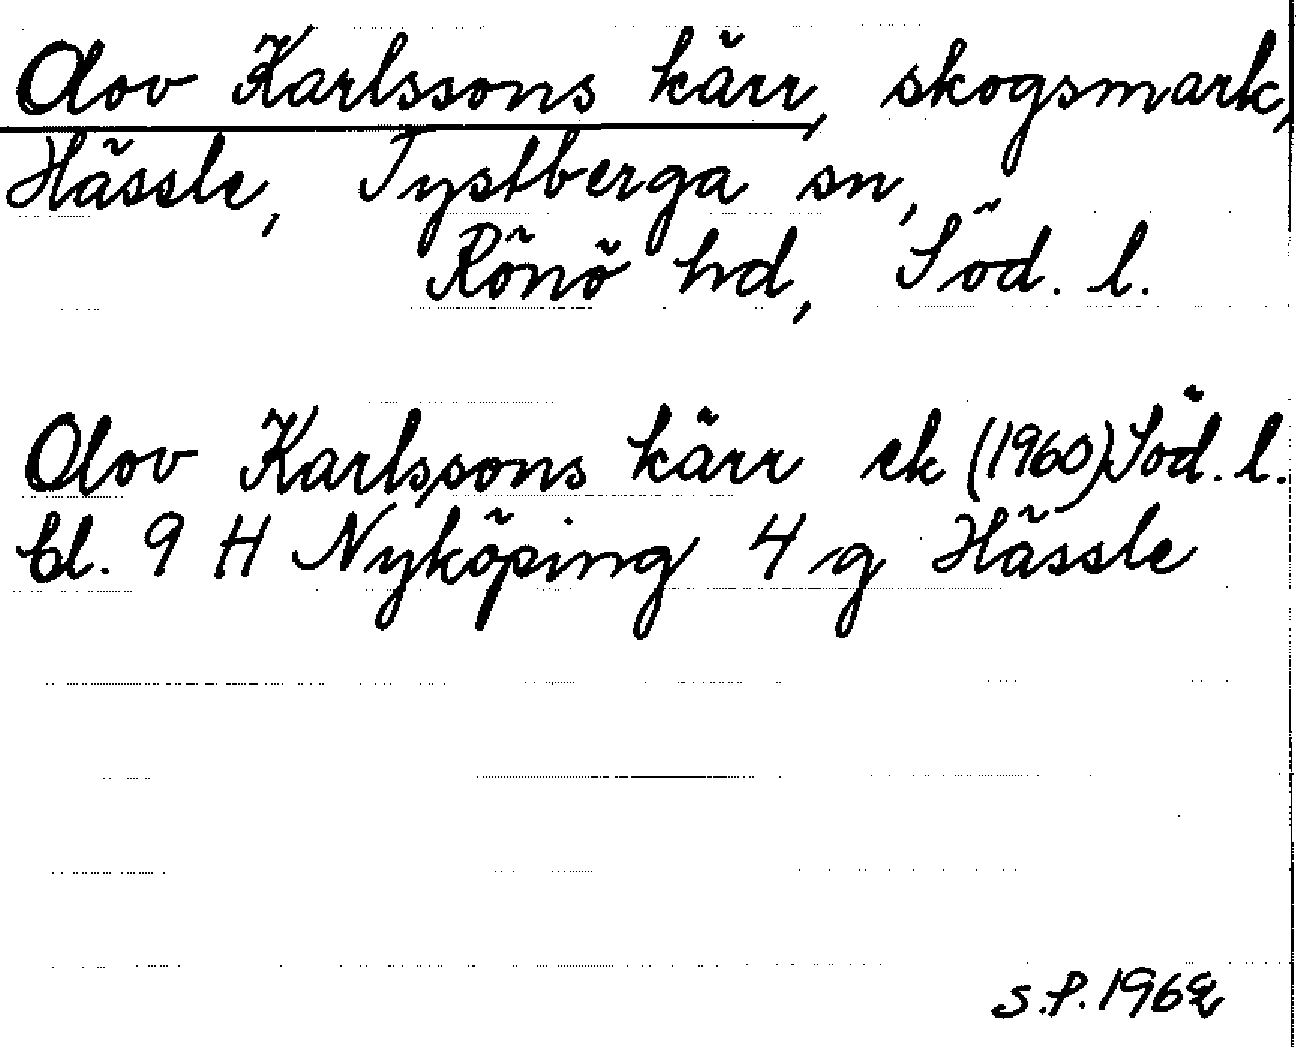 Olov Karlssons kärr, skogsmark,
Hässle, Tystberga sn,
Rönö hd, Söd. l.
Olov Karlssons kärr ek (1960) Söd. l.
bl. 9 H Nyköping 4 g Hässle
S.P. 1962